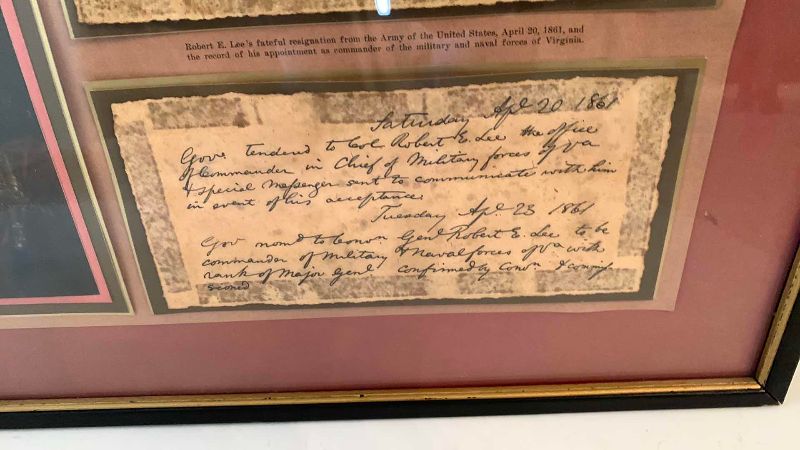 Robert E. Lee's fateful resignation from the Army of the United States, April 20, 1861, and
the record of his appointment as commander of the military and naval forces of Virginia.
Saturday Apl 20 1861
Gov. tenderd to Col Robert E. Lee the office
of Commander in Chief of Military forces of Va
& special Messenger sent to communicate with him
in event of his acceptance
Tuesday Apl. 23 1861
Gov nomd to Convn Genl Robert E. Lee to be
commander of Military & Naval forces of Va with
rank of Major Genl confirmed by Convn & commis
sioned